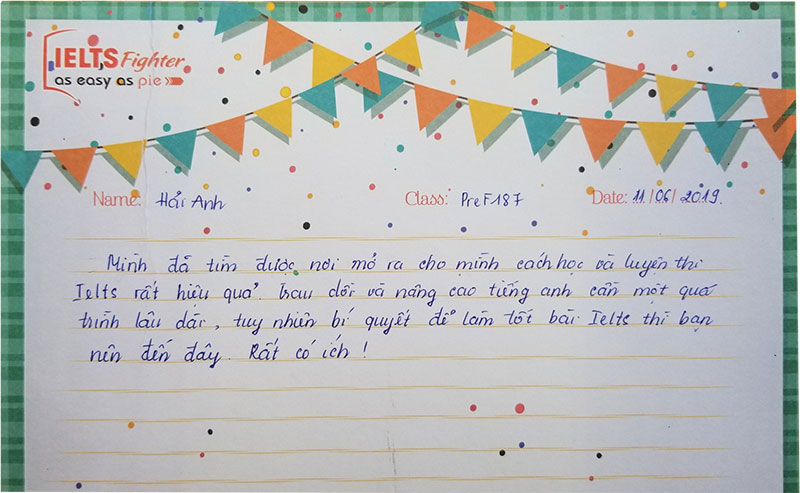 IELTS Fighter
as easy as pie
Name: Hải Anh Class: PreF187 Date: 11/06/2019.
Mình đã tìm được nơi mở ra cho mình cách học và luyện thi
Ielts rất hiệu quả. Trau dồi và nâng cao tiếng anh cần một quá
trình lâu dài, tuy nhiên bí quyết để làm tốt bài Ielts thì bạn
nên đến đây. Rất có ích!